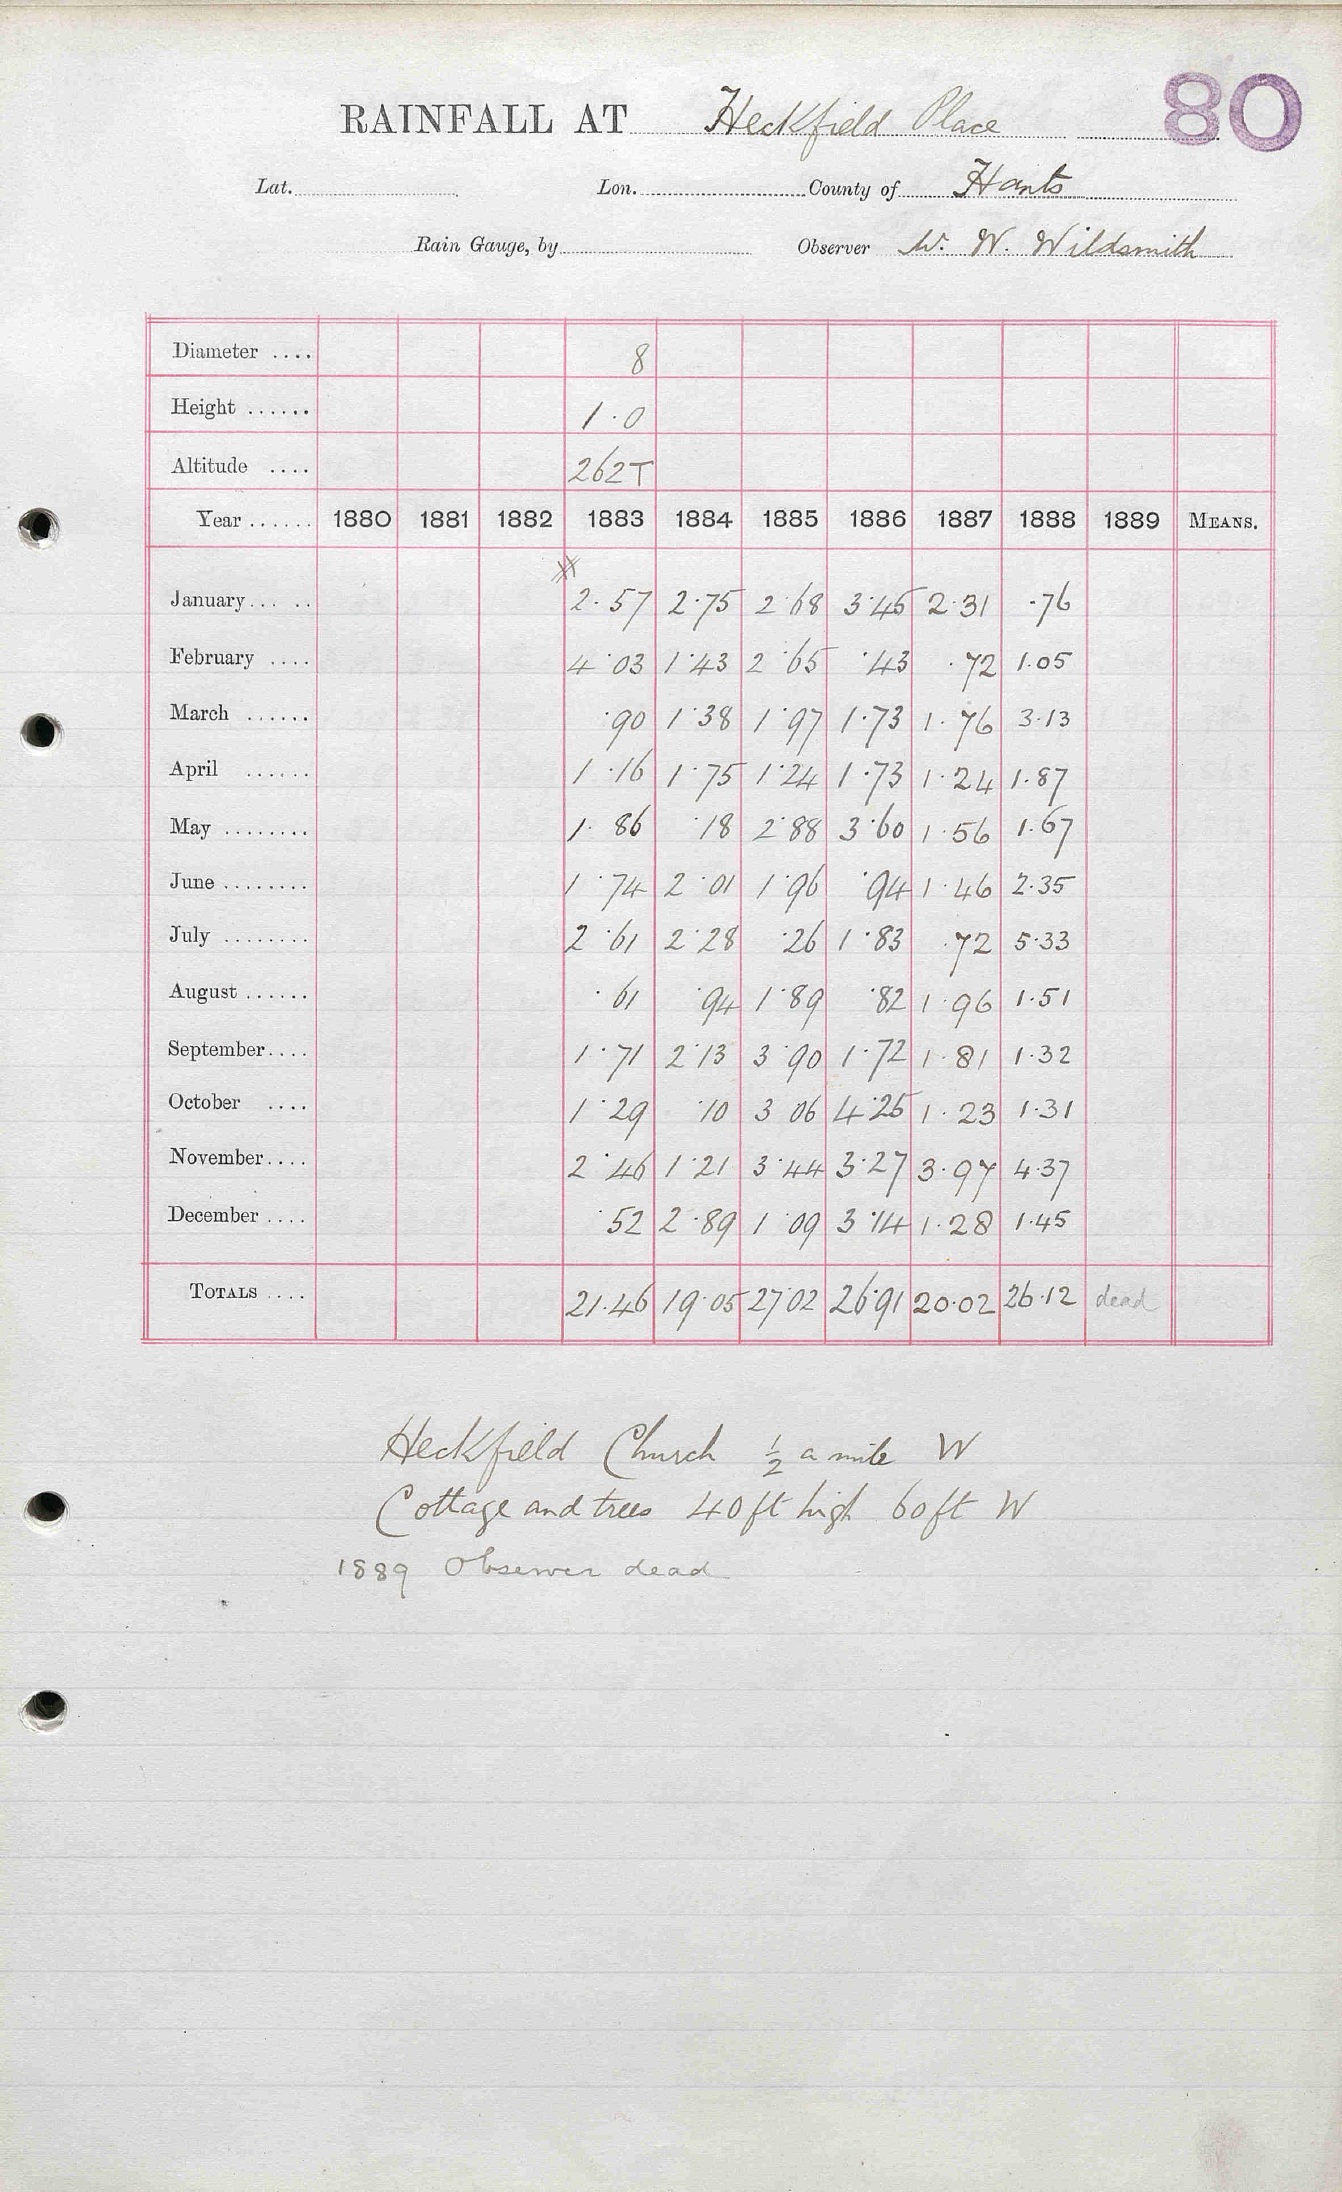 80
RAINFALL AT Heckfield Place
Lat. Lon. County of Hants
Rain Gauge, by Observer W. W. Wildsmith
Diameter .... 8
Height ...... 1.0
Altitude .... 262T
Year ...... 1880 1881 1882 1883 1884 1885 1886 1887 1888 1889 MEANS.
January ... .. 2.57 2.75 2.68 3.45 2.31 .76
February .... 4.03 1.43 2.65 .43 .72 1.05
March ...... .90 1.38 1.97 1.73 1.76 3.13
April ...... 1.16 1.75 1.24 1.73 1.24 1.87
May ........ 1.86 .18 2.88 3.60 1.56 1.67
June ........ 1.74 2.01 1.96 .94 1.46 2.35
July ........ 2.61 2.28 .26 1.83 .72 5.33
August ...... .61 .94 1.89 .82 1.96 1.51
September .... 1.71 2.13 3.90 1.72 1.81 1.32
October .... 1.29 .10 3 06 4.25 1.23 1.31
November .... 2.46 1.21 3.44 3.27 3.97 4.37
December .... .52 2.89 1.09 3.14 1.28 1.45
TOTALS .... 21.46 19.05 27.02 26.91 20.02 26.12 dead
Heckfield Church ½ a mile W
Cottage and trees 40ft high 60ft W
1889 Observer dead